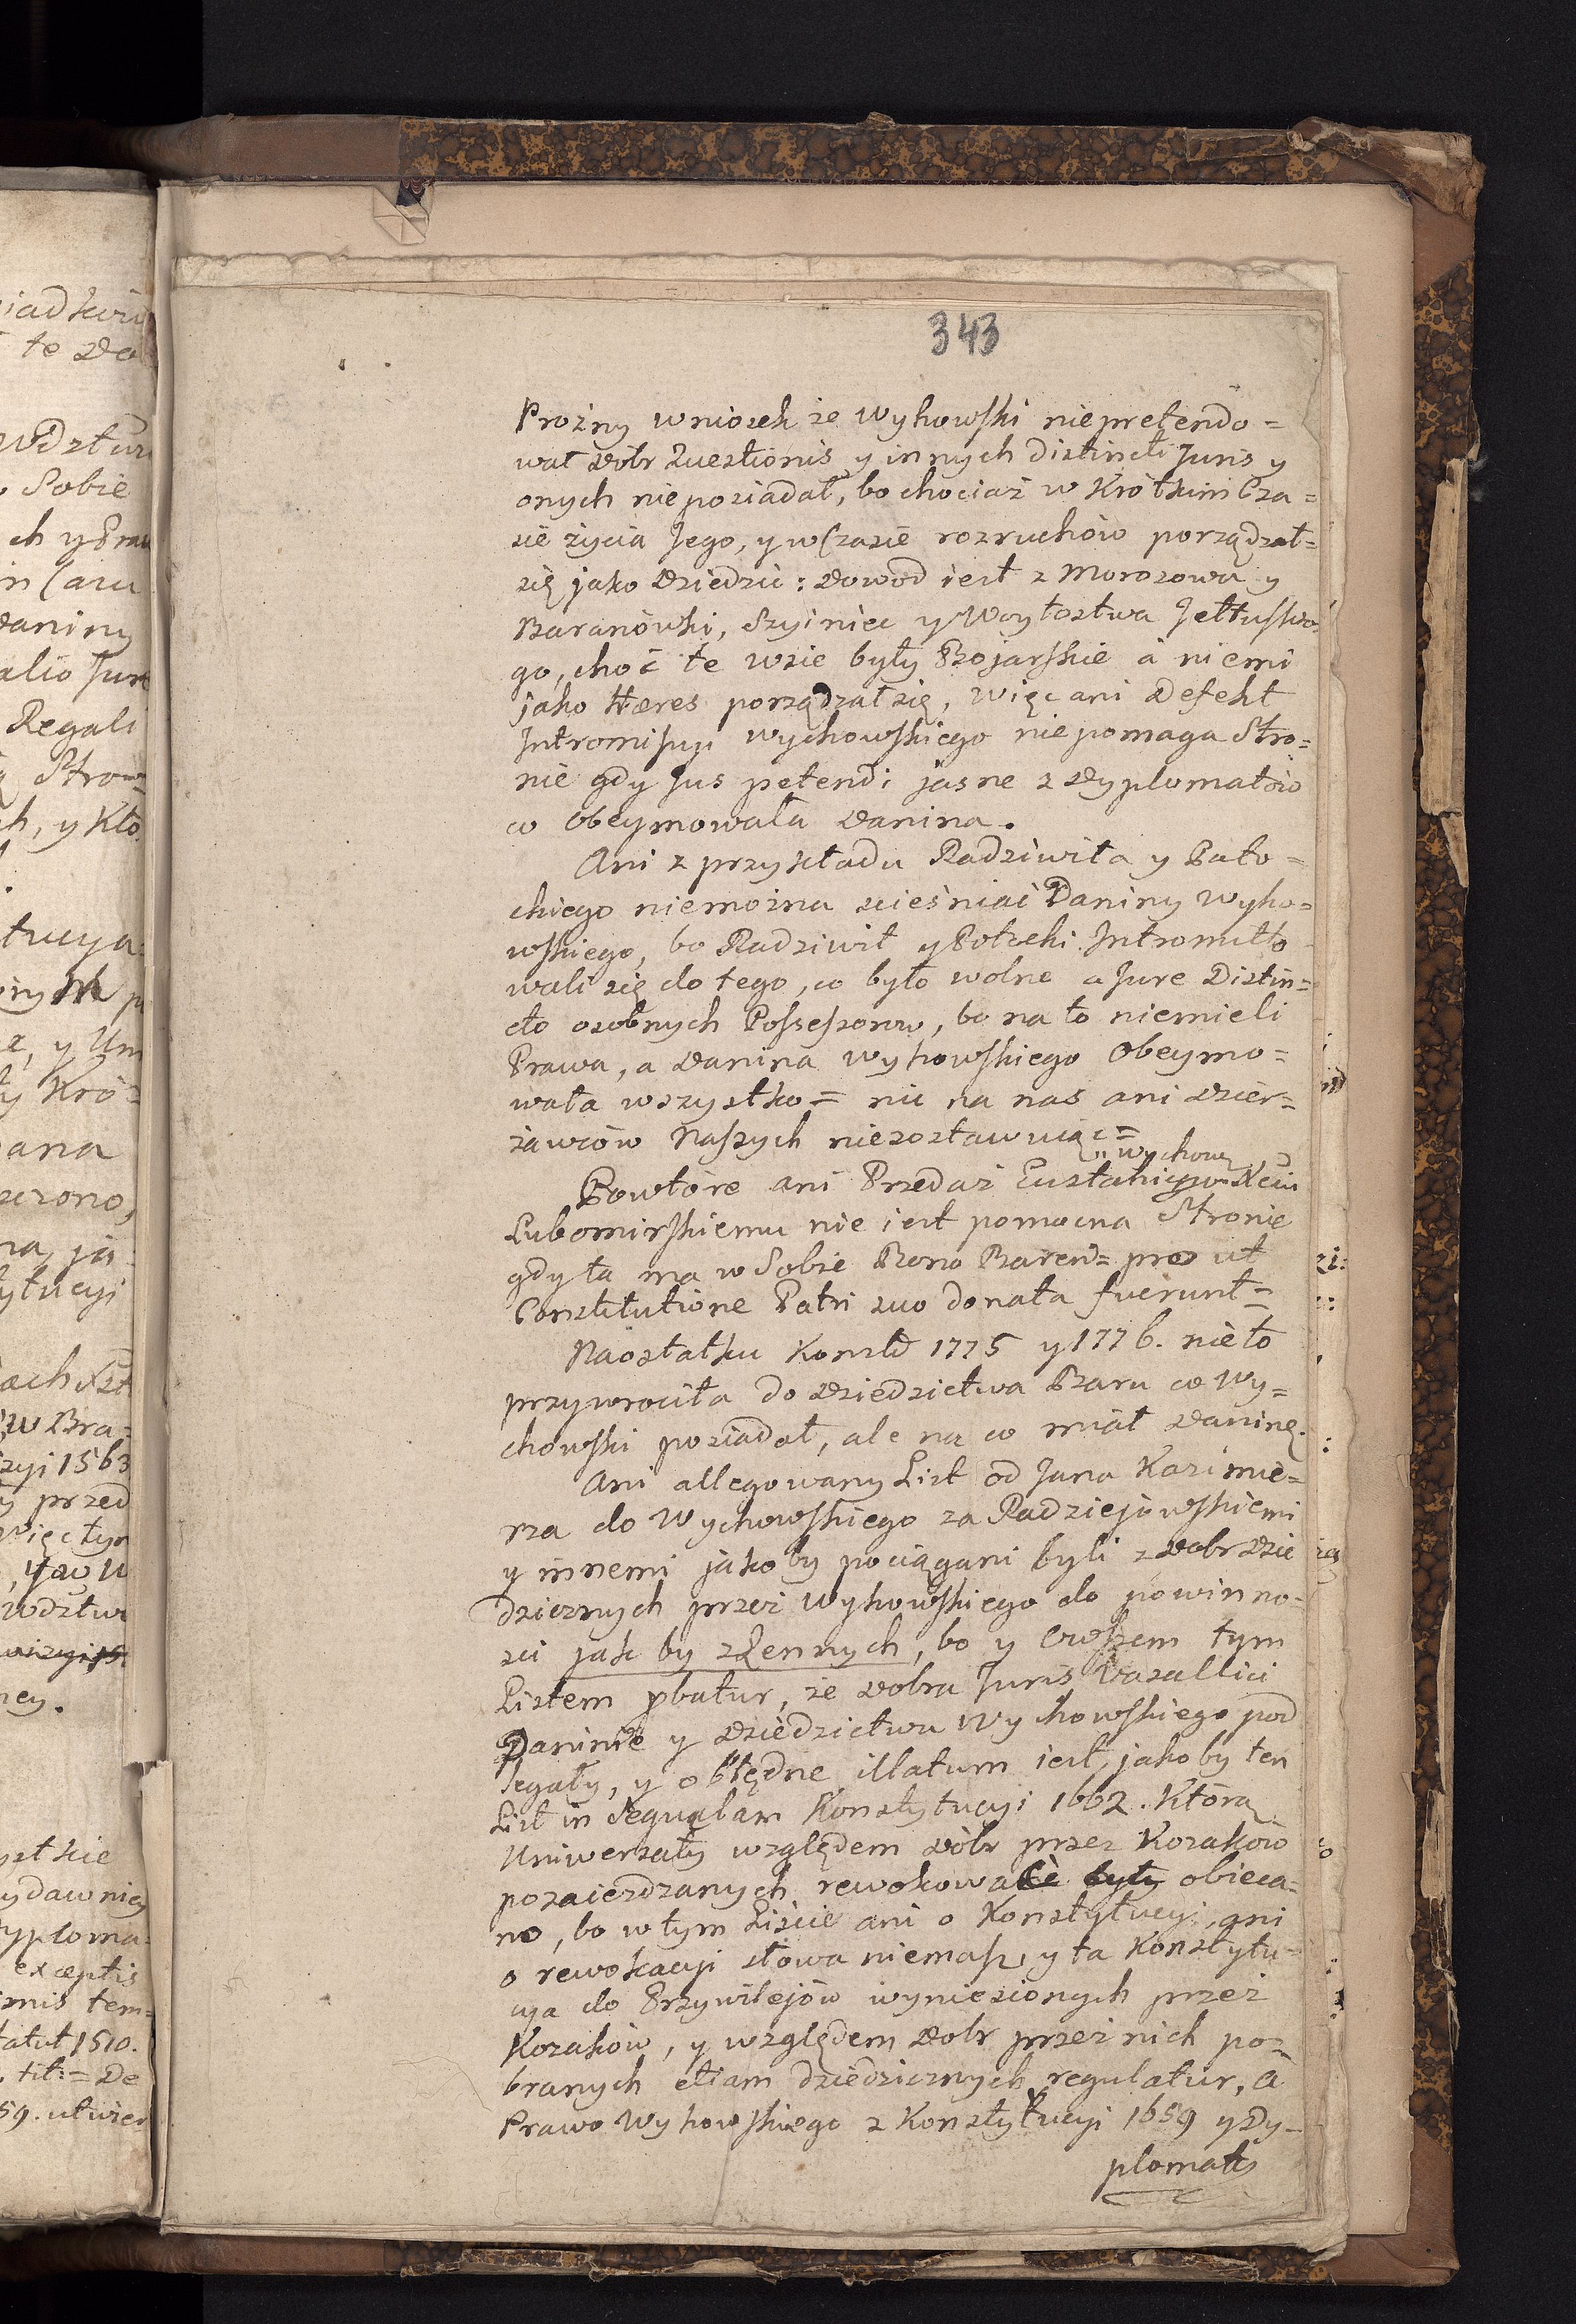 343
Prozny wniosek że Wyhowski niepretendo=
wał Dóbr Questionis y innych distincti Juris y
onych nieposiadał, bo chociaż w Krótkim Cza=
sie życia Jego, y w Czasie rozruchów porządzał=
się jako Dziedzic: Dowod iest z Morozowa y
Baranówki, Szyiniec y Woytostwa Jełtusko=
go, choć te wsie były Bojarskie a niemi
jako Hæres porządzał się, więc ani Defekt
Intromissyi Wychowskiego niepomaga Stro=
nie gdy Jus petendi jasne z Dyplomatów
co Obeymowała Danina.
Ani z przykładu Radziwiła y Poto=
ckiego niemożna scieśniać Daniny Wyho=
wskiego, bo Radziwił y Potocki Intromitto
wali się do tego, co było wolne a Jure Distin=
cto osobnych Possessorow, bo na to niemieli
Prawa, a Danina Wyhowskiego Obeymo=
wała wszystko = nic na nas ani Dzier=
żawców Naszych niezostawuiąc =
Wychow
Powtóre ani Przedaż Eustahi Xciu
Lubomirskiemu nie iest pomocna Stronie
gdy ta ma w Sobie Bona Barens= pro ut
Constitutione Patri suo donata fuerunt=
Naostatku Konstt 1775 y 1776. nie to
przywrociła do Dziedzictwa Baru co Wy=
chowski posiadał, ale na co miał Daninę.
Ani allegowany List od Jana Kazimie=
rza do Wychowskiego za Radziejowskiemi
y innemi jakoby pociągani byli z Dobr Dzie
dzicznych przez Wyhowskiego do powinno=
sci jak by zLennych, bo y Owszem tym
Listem pbatur, że Dobra Juris Vasallici
Daninie y Dziedzictwu Wychowskiego pod
legały, y obłędne illatum iest, jakoby ten
List in Sequelam Konstytucyi 1662. Którą
Uniwersały względem Dóbr przez Kozaków
pozaiezdzanych rewokować były obieca=
no, bo w tym Liście ani o Konstytucyi, ani
o rewokacyi słowa niemasz, y ta Konstytu=
cya do Przywilejów wyniesionych przez
Kozaków, y względem Dobr przez nich po=
branych etiam dziedzicznych regulatur, a
Prawo Wyhowskiego z Konstytucyi 1659 y Dy=
plomaty